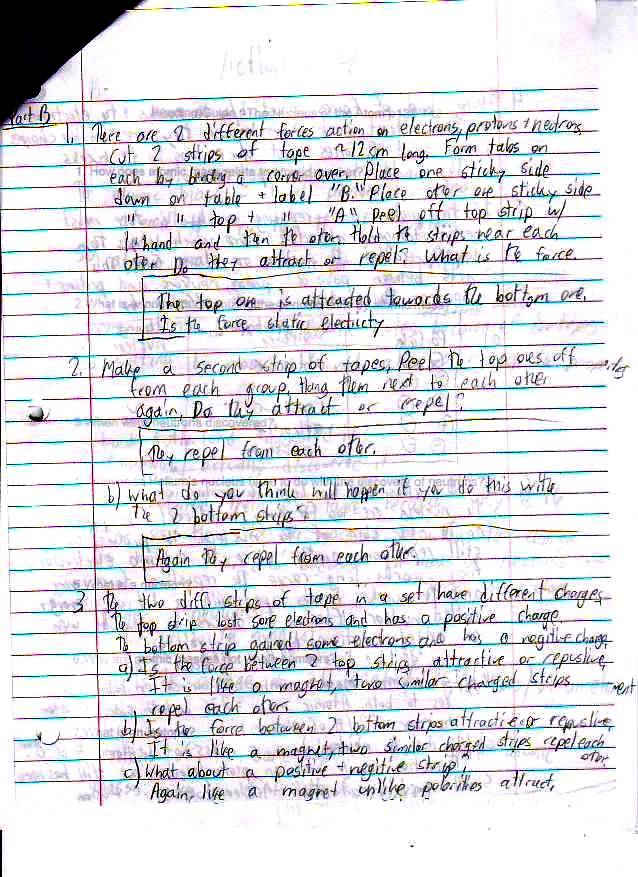 Part B
1. There are 2 different forces action on electrons, protons + neutrons.
Cut 2 strips of tape ~12cm long. Form tabs on
each by bending a corner over. Place one sticky side
down on table + label "B." Place other one sticky side
" " top + " "A". Peel off top strip w/
1 hand and then the other. Hold the strips near each
other Do they attract or repel? What is the force
The top one is attracted towards the bottom one.
Is the force static electricty
2. Make a second strip of tapes, Peel the top ones off
from each group, Hang them next to each other
again, Do they attract or repel?
They repel from each other.
b) What do you think will happen if you do this with
the 2 bottom strips?
Again they repel from each other.
3 The two diff. strips of tape in a set have different charges
The top strip lost some electrons and has a positive charge
The bottom strip gained some electrons and has a negitive charge
a) Is the force between 2 top strips attractive or repuslive,
It is like a magnet, two similar charged strips
repel each others
b) Is the force between 2 bottom strips attractive or repuslive
It is like a magnet, two similar charged strips repel each
other
c) What about a positive + negitive strip?
Again, like a magnet unlike polarities attract,